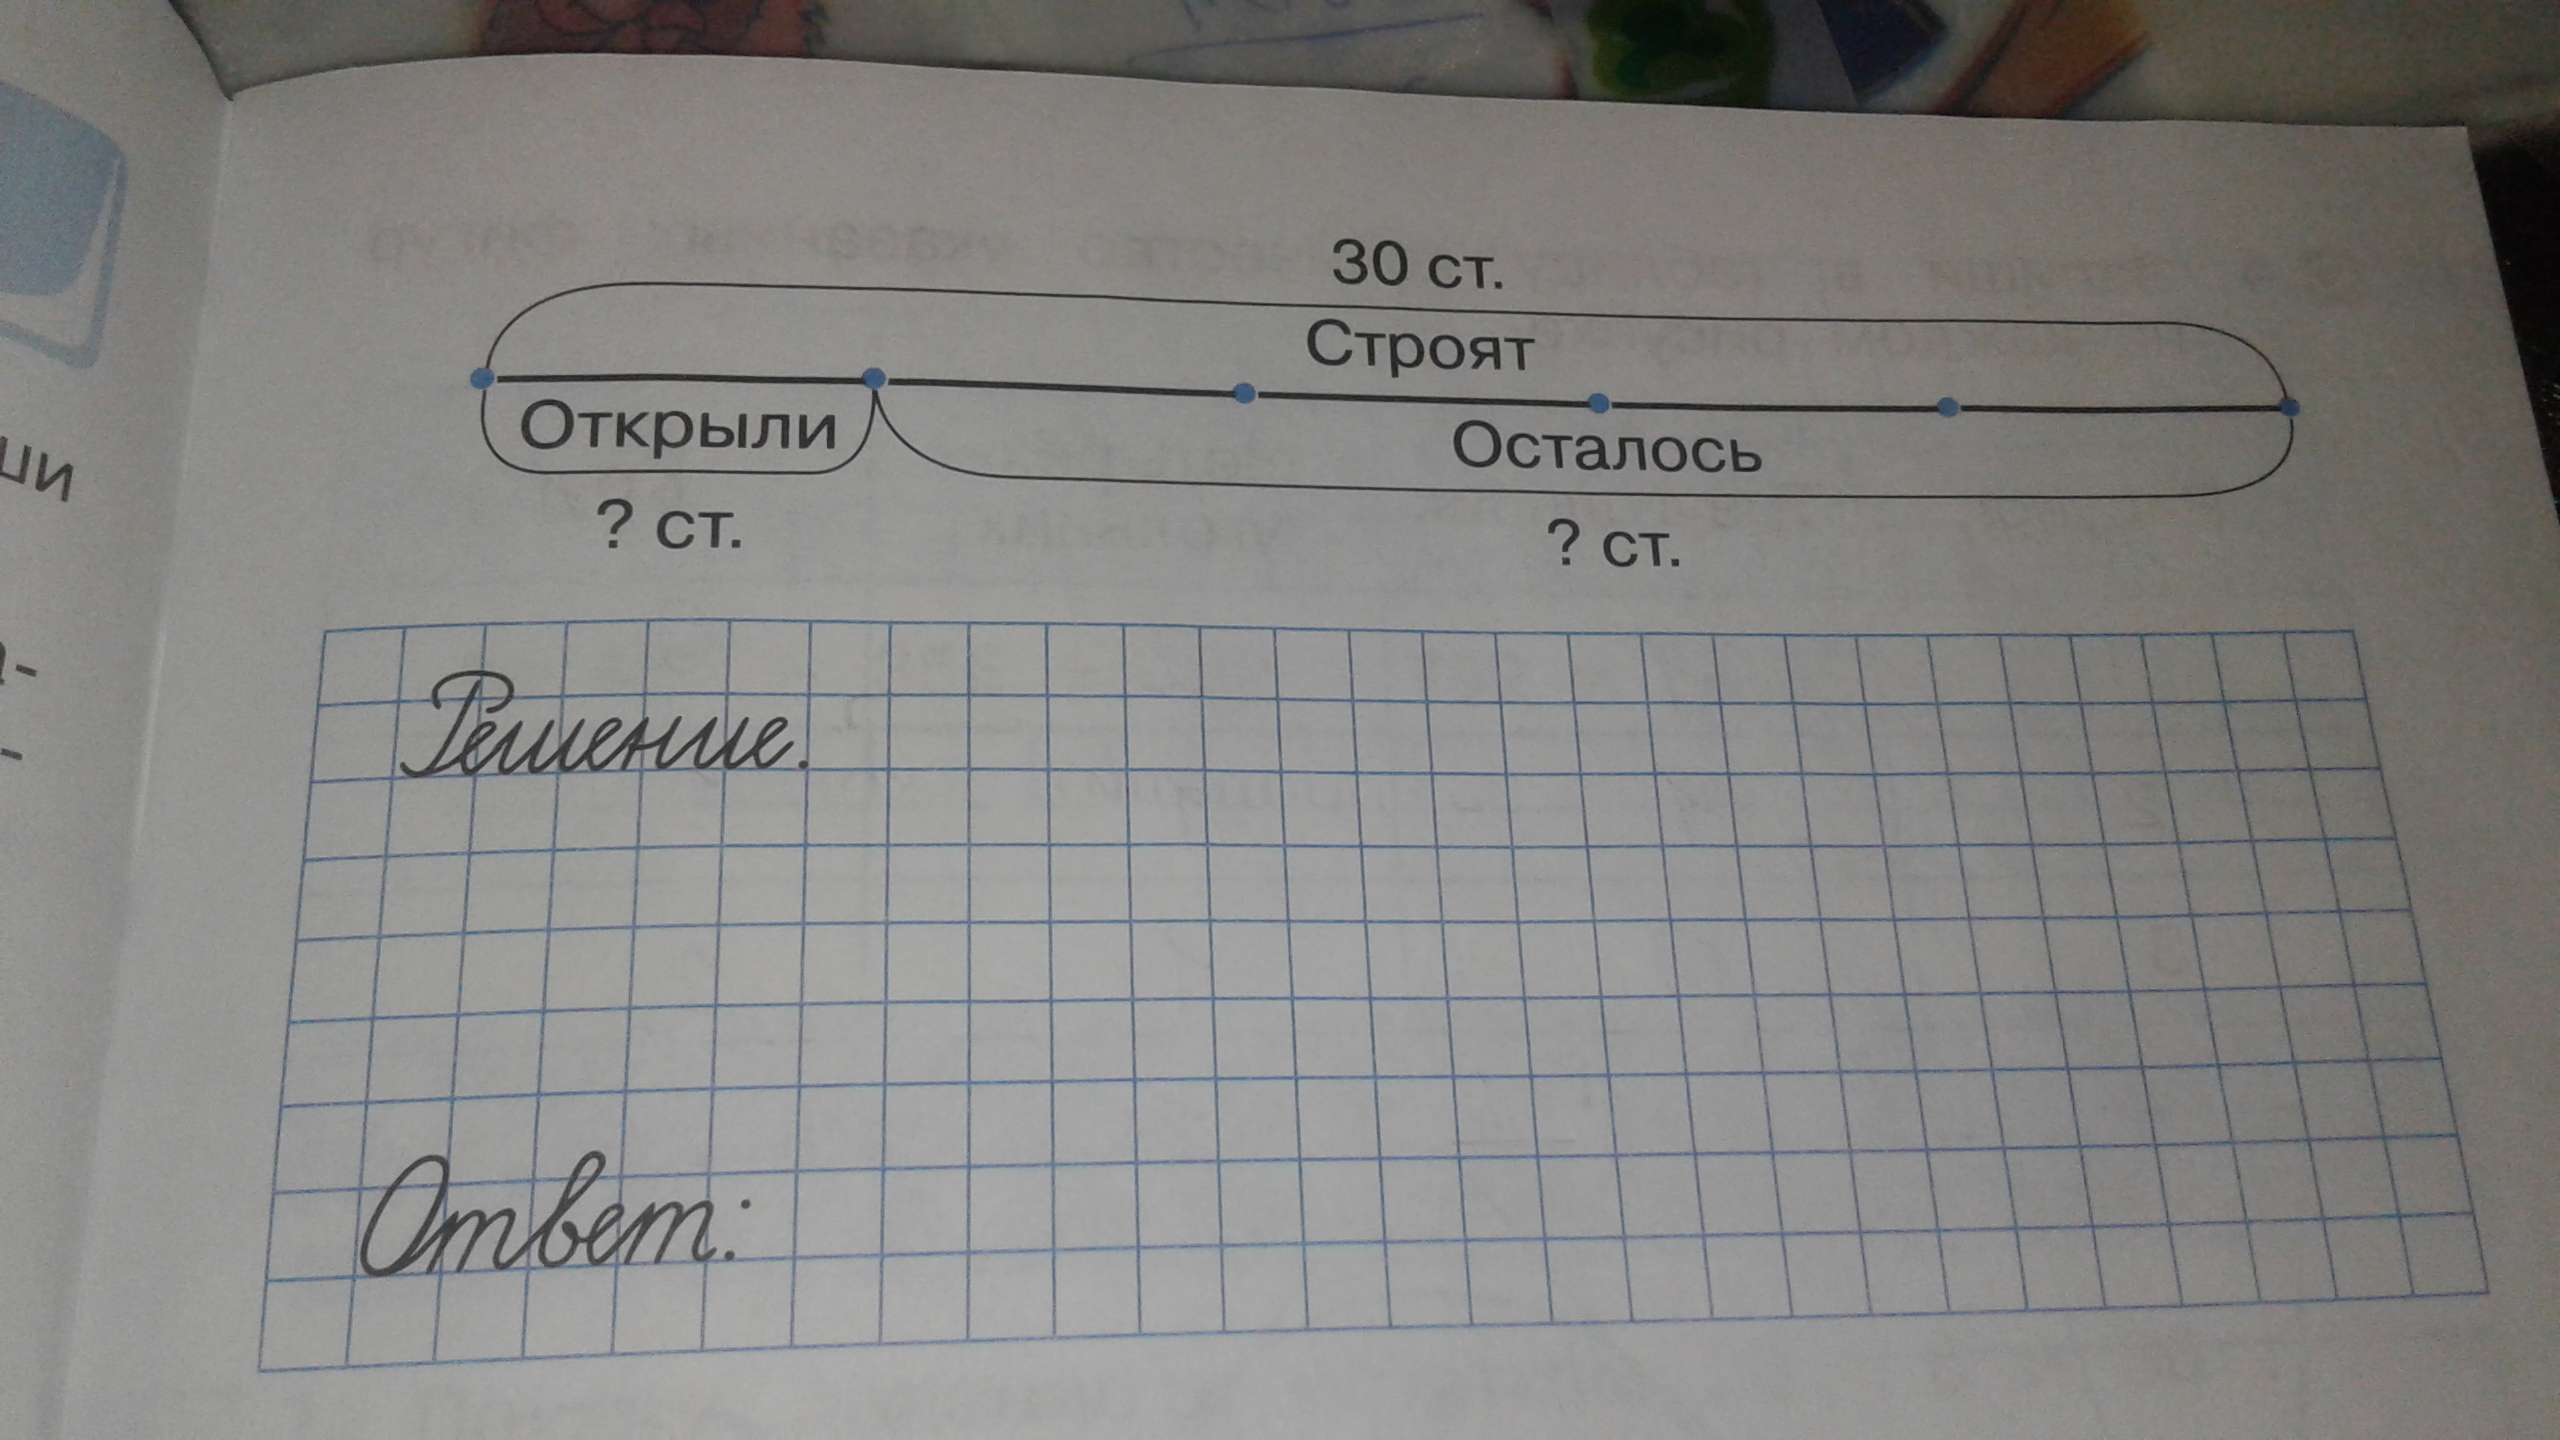 30 ст.
Строят
Открыли
Осталось
? ст.
? ст.
ши
-
-
Решение.
Ответ: